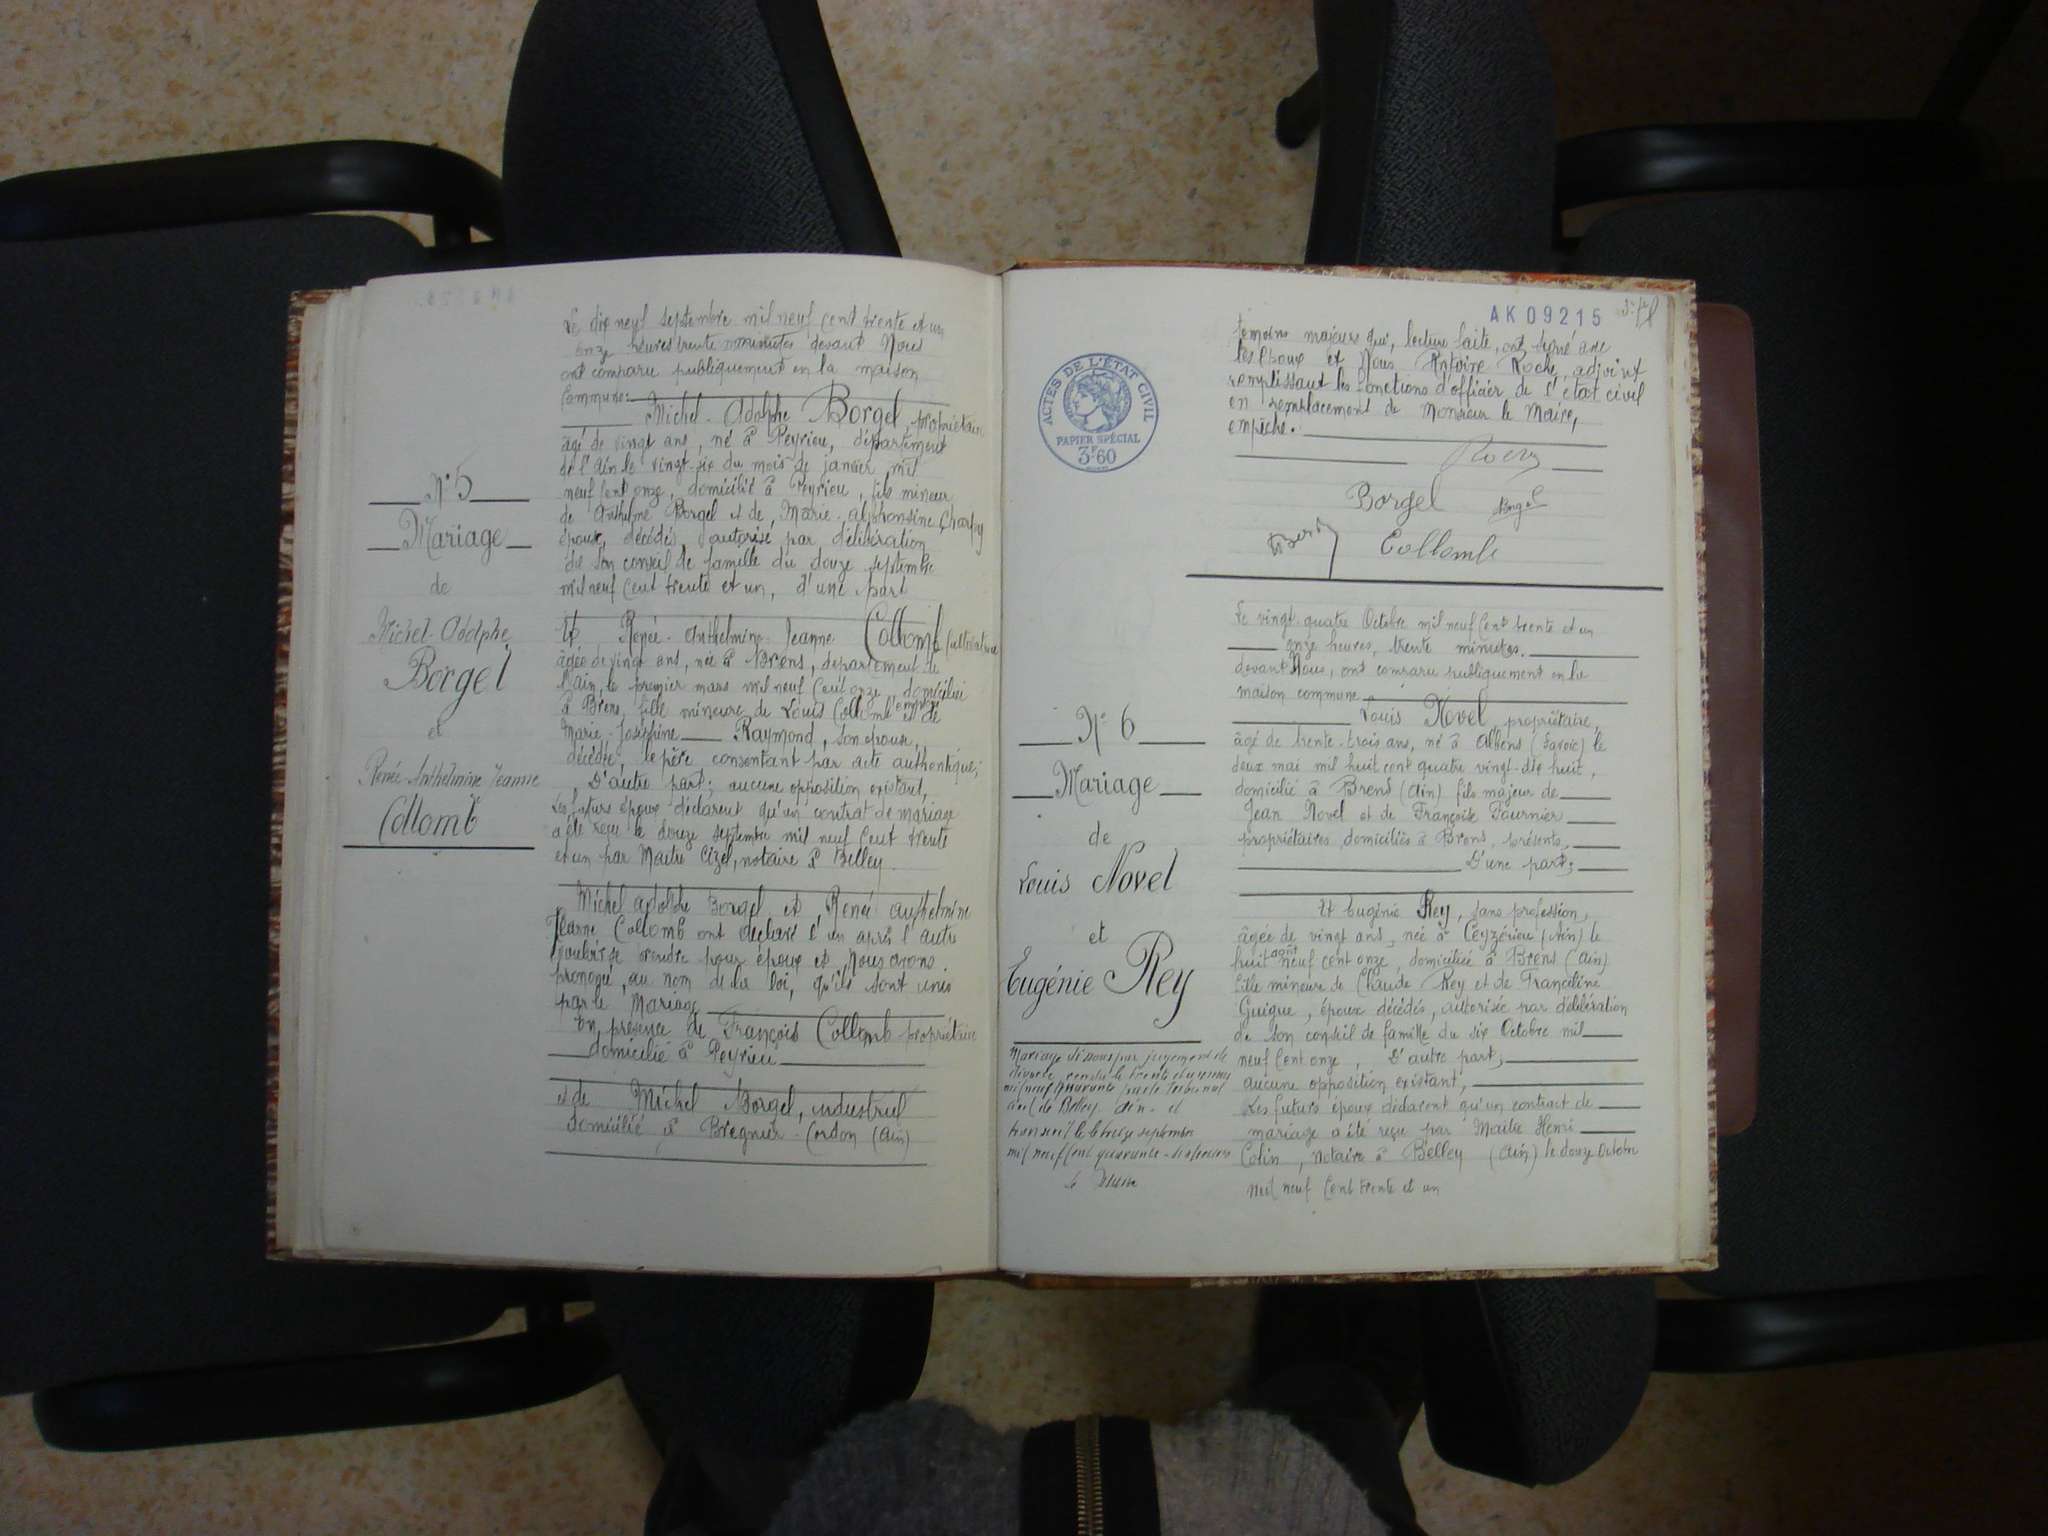 Le dix neuf septembre mil neuf cent trente et un
onze heures trente minutes devant Nous
ont comparu publiquement en la maison
Commune:
Michel-Adolphe Borgel, propriétaire
âgé de vingt ans, né à Peyrieu, département
de l'Ain le vingt-six du mois de janvier mil
neuf Cent onze, domicilié à Peyrieu, fils mineur
de Anthelme Borgel et de Marie-alphonsine Charby
époux, décédés, autorisé par délibération
de son conseil de famille du douze septembre
mil neuf Cent trente et un, d'une part
Et Renée-Anthelmine-Jeanne Collomb Cultivatrice
âgée de vingt ans, née à Brens, département de
l'Ain, le premier mars mil neuf Cent onze, domiciliée
à Brens, fille mineure de Louis Collomb et de
Marie-Joséphine Raymond, son épouse,
décédée, le père consentant par acte authentique;
D'autre part; aucune opposition existant,
Les futurs époux déclarent qu'un contrat de mariage
a été reçu le douze septembre mil neuf Cent trente
et un par Maître Cizel, notaire à Belley.
Michel Adolphe Borgel et Renée anthelmine
Jeanne Collomb ont déclaré l'un après l'autre
vouloir se prendre pour époux et Nous avons
prononcé, au nom de la loi, qu'ils sont unis
par le Mariage
En présence de François Collomb propriétaire
domicilié à Peyrieu
et de Michel Borgel, industriel
domicilié à Bregnier-Cordon (Ain)
N° 5
Mariage
de
Michel-Adolphe
Borgel
et
Renée Anthelmine Jeanne
Collomb
AK 09215
témoins majeurs qui, lecture faite, ont signé avec
les Epoux et Nous Antoine Roche, adjoint
remplissant les fonctions d'officier de l'état civil
en remplacement de Monsieur le Maire,
empêché.
Borgel
Borgel
Collomb
ACTES DE L'ÉTAT CIVIL
PAPIER SPÉCIAL
3F60
Le vingt-quatre Octobre mil neuf Cent trente et un
onze heures, trente minutes.
devant Nous, ont comparu publiquement en la
maison commune
Louis Novel, propriétaire,
âgé de trente-trois ans, né à Albens (Savoie) le
deux mai mil huit cent quatre vingt-dix huit,
domicilié à Brens (Ain) fils majeur de
Jean Novel et de Françoise Fournier
propriétaires, domiciliés à Brens, présents,
D'une part;
Et Eugénie Rey, sans profession,
âgée de vingt ans, née à Ceyzérieu (Ain) le
huit août neuf cent onze, domiciliée à Brens (Ain)
fille mineure de Claude Rey et de Francéline
Guigue, époux décédés, autorisée par délibération
de son conseil de famille du six Octobre mil
neuf Cent onze, D'autre part;
aucune opposition existant,
Les futurs époux déclarent qu'un contract de
mariage a été reçu par Maître Henri
Colin, notaire à Belley (Ain) le douze Octobre
mil neuf Cent trente et un
N° 6
Mariage
de
Louis Novel
et
Eugénie Rey
Mariage dissous par jugement de
divorce rendu le trente
mil neuf quarante par le Tribunal
civil de Belley Ain - et
transcrit le treize septembre
mil neuf Cent quarante-
le